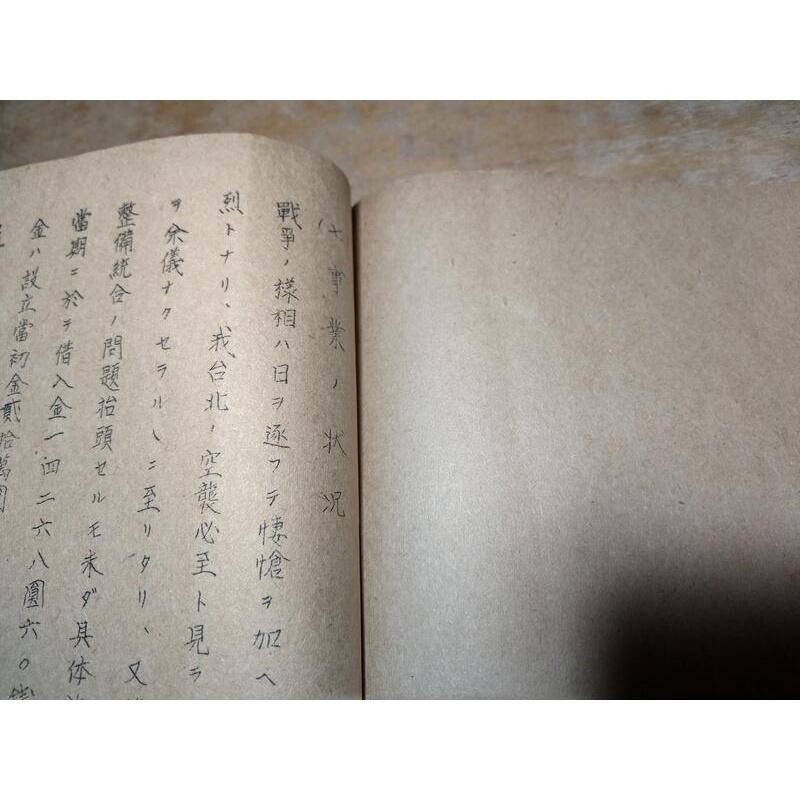 事業ノ状況
戰爭ノ様相ハ日ヲ逐フテ悽愴ヲ加ヘ
烈トナリ、我台北ノ空襲必至ト見ラ
ヲ余儀ナクセラルヽニ至リタリ、又
整備統合ノ問題抬頭セルモ未ダ具体
當期ニ於テ借入金一四二六八圓六〇銭
金ハ設立當初金貳拾萬圓